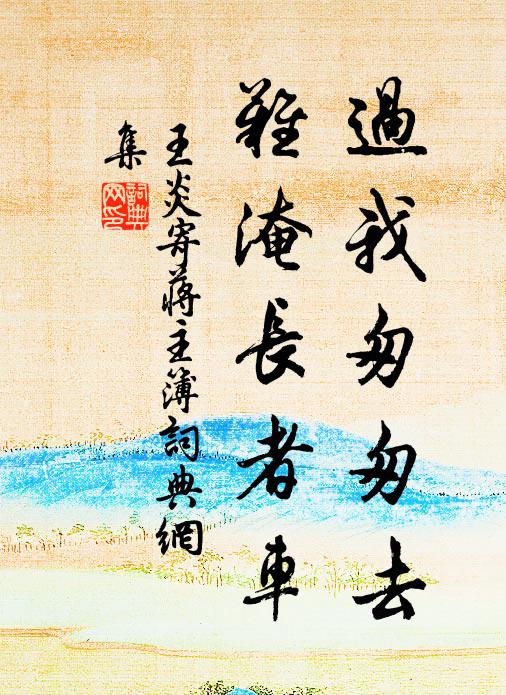 過我匆匆去
難淹長者車
王炎寄蔣主簿詞典網
集
詞典
网印